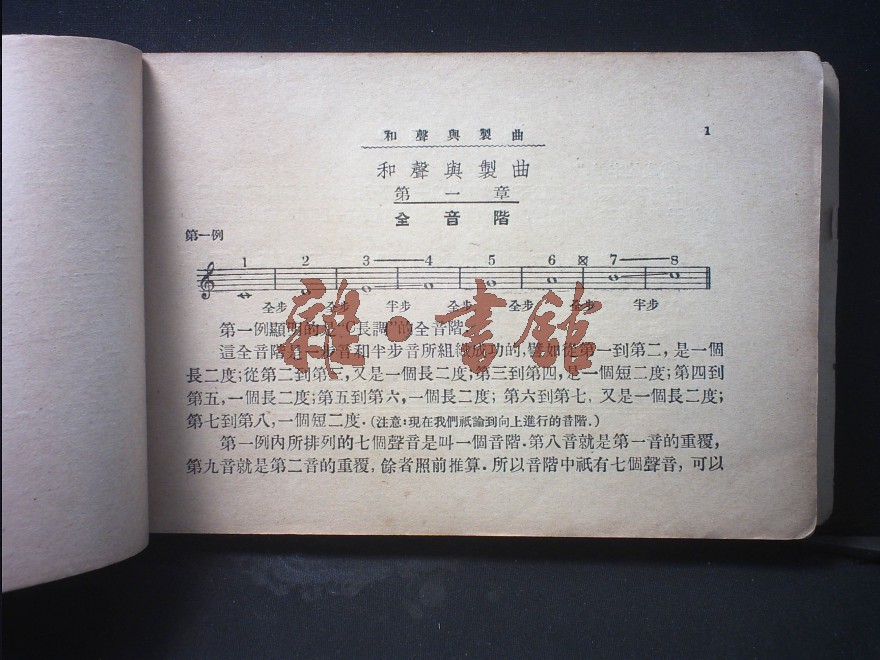 和聲與製曲 1
和聲與製曲
第一章
全音階
第一例
1 2 3 4 5 6 7 8
全步 全步 半步 全步 全步 全步 半步
第一例顯明的是“C長調”的全音階.
這全音階是一步音和半步音所組織成功的,譬如從第一到第二,是一個
長二度;從第二到第三,又是一個長二度;第三到第四,是一個短二度;第四到
第五,一個長二度;第五到第六,一個長二度;第六到第七,又是一個長二度;
第七到第八,一個短二度.(注意:現在我們祇論到向上進行的音階.)
第一例內所排列的七個聲音是叫一個音階.第八音就是第一音的重覆,
第九音就是第二音的重覆,餘者照前推算.所以音階中祇有七個聲音,可以
雜·書館